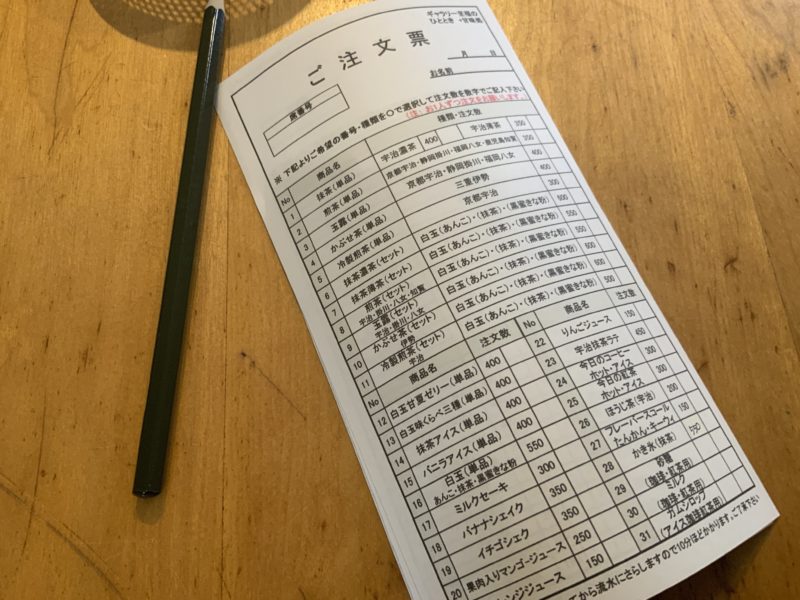 ギャラリー喫福の
ひととき・甘味処
ご注文票
月 日
お名前
席番号
※ 下記よりご希望の番号・種類を〇で選択して注文数を数字でご記入下さい
No 商品名 種類・注文数
1 抹茶(単品) 宇治濃茶 400 宇治薄茶 350
2 煎茶(単品) 京都宇治・静岡掛川・福岡八女・鹿児島知覧 350
3 玉露(単品) 京都宇治・静岡掛川・福岡八女 400
4 かぶせ茶(単品) 三重伊勢 400
5 冷製煎茶(単品) 京都宇治 300
6 抹茶濃茶(セット) 白玉(あんこ)・(抹茶)・(黒蜜きな粉)
7 抹茶薄茶(セット) 白玉(あんこ)・(抹茶)・(黒蜜きな粉) 550
8 煎茶(セット) 白玉(あんこ)・(抹茶)・(黒蜜きな粉) 550
宇治・掛川・八女・知覧
9 玉露(セット) 白玉(あんこ)・(抹茶)・(黒蜜きな粉) 600
宇治・掛川・八女
10 かぶせ茶(セット) 白玉(あんこ)・(抹茶)・(黒蜜きな粉) 600
伊勢
11 冷製煎茶(セット) 白玉(あんこ)・(抹茶)・(黒蜜きな粉) 500
宇治
No 商品名 注文数 No 商品名 注文数
12 白玉甘夏ゼリー(単品) 400 22 りんごジュース 150
13 白玉味くらべ三種(単品) 400 23 宇治抹茶ラテ 450
14 抹茶アイス(単品) 400 24 今日のコーヒー 300
ホット・アイス
15 バニラアイス(単品) 400 25 今日の紅茶 300
ホット・アイス
16 白玉(単品) 550 26 ほうじ茶(宇治) 200
あんこ・抹茶・黒蜜きな粉
17 ミルクセーキ 300 27 フレーバースコール 150
たんかん・キーウィ
18 バナナシェイク 350 28 かき氷(抹茶)
19 イチゴシェク 350 29 砂糖
(珈琲・紅茶用)
20 果肉入りマンゴ-ジュース 250 30 ミルク
(珈琲・紅茶用)
ンジジュース 150 31 ガムシロップ
(アイス珈琲紅茶用)
てから流水にさらしますので10分ほどかかります。ご了承下さい